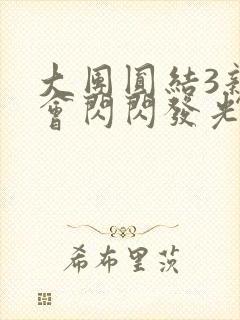 大團圓結3新
會閃閃發光
希布里茨